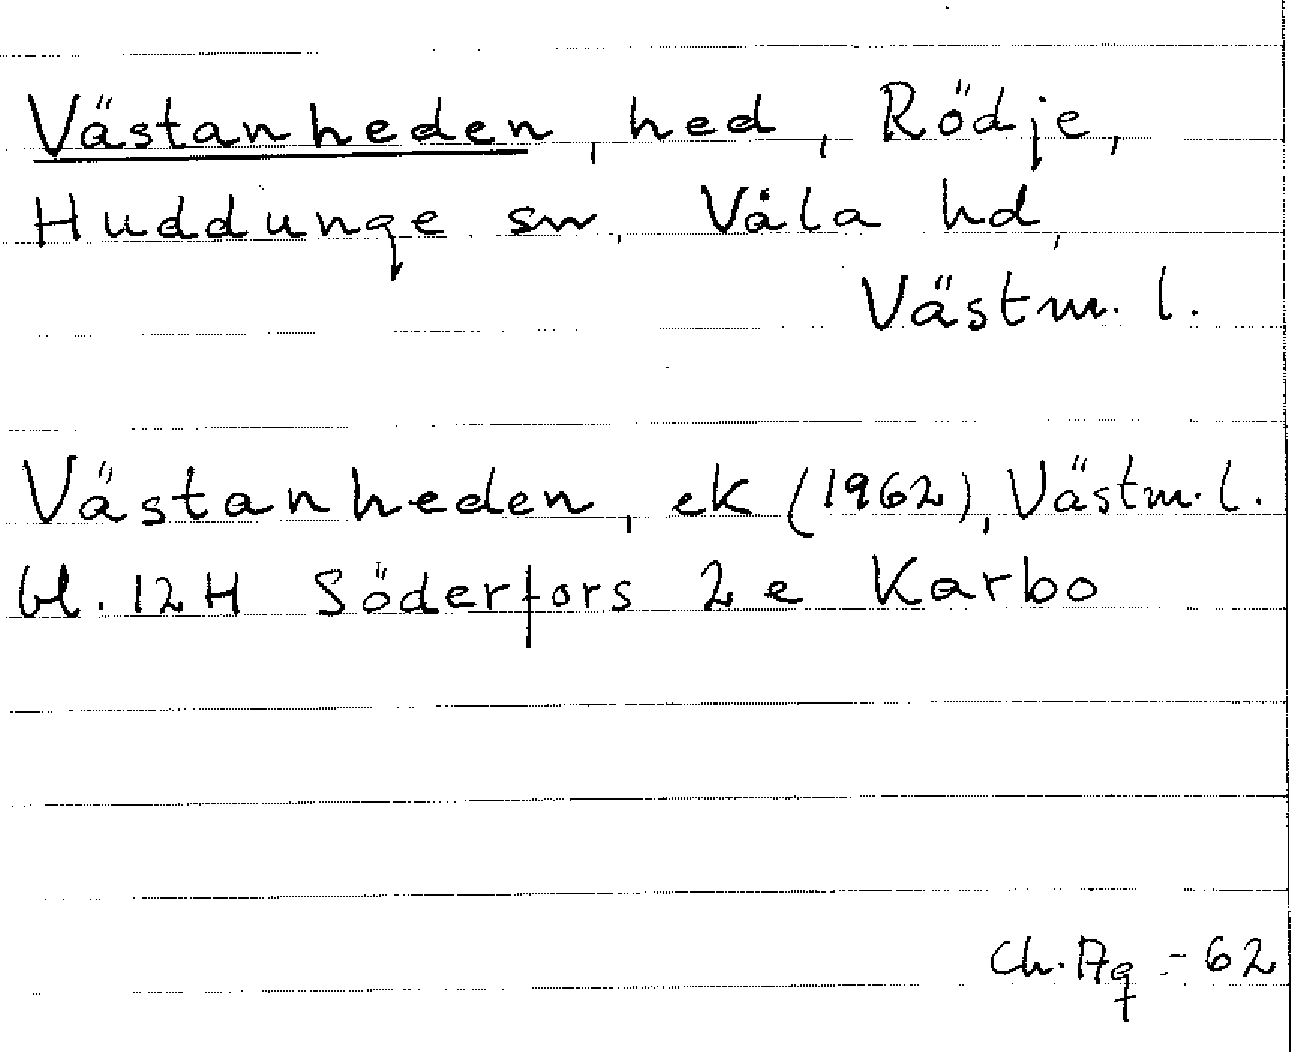 Västanheden, hed, Rödje,
Huddunge sn, Våla hd,
Västm. l.
Västanheden, ek (1962), Västm. l.
bl. 12H Söderfors 2e Karbo
Ch. Ag -62